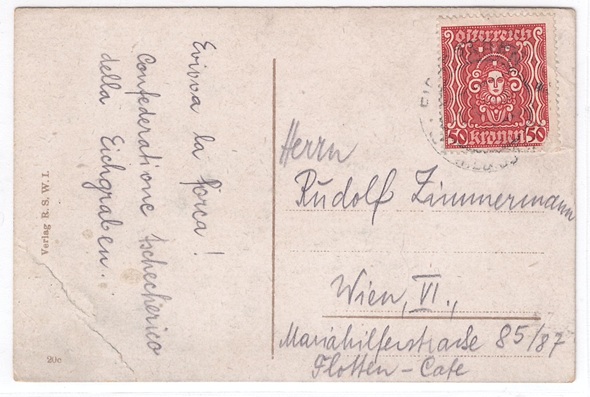 Evivva la forca!
Confederatione tschecherico
della Eichgraben.
Verlag R. S. W. I.
20c
österreich
50 kronen 50
Herrn
Rudolf Zimmermann
Wien, VI.,
Mariahilferstraße 85/87
Flotten-Cafe